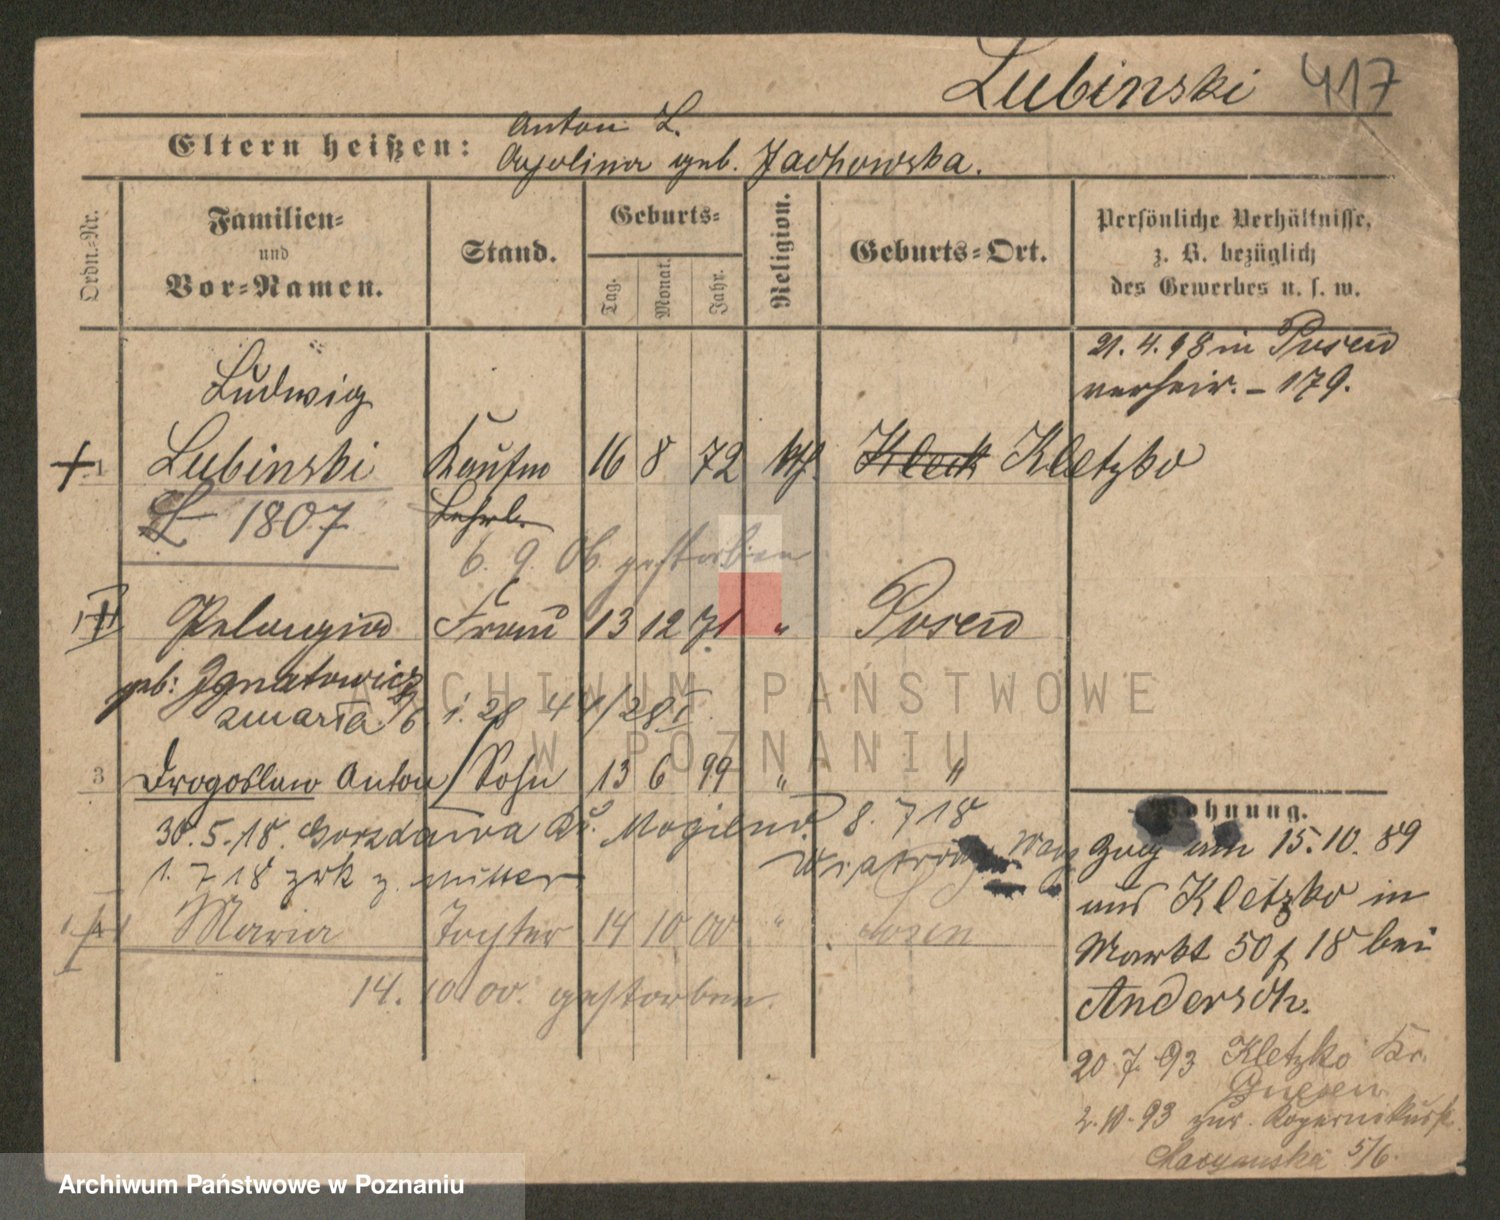 Lubinski 417
Eltern heißen: Anton L.
Apolina geb. Jachowska.
Ordn.-Nr.
Familien-
und
Vor-Namen.
Stand.
Geburts-
Tag. Monat. Jahr.
Religion.
Geburts-Ort.
Persönliche Verhältnisse,
z. B. bezüglich
des Gewerbes u. s. w.
21. 4. 98 in Posen
verheir. - 179.
Ludwig
1 Lubinski Kaufm 16 8 72 kth. Kleck Kletzko
L 1807 Lehrl.
6. 9. 06. gestorben
Pelagia Frau 13 12 71 " Posen
geb: Ignatowicz
zmarła 28 4 41/281
3 Drogoslaw Anton Sohn 13 6 99 " "
30. 5. 18. Kr. Mogilno 8. 7 18
1. 7 18 zrk z. Mutter
4 Maria Tochter 14 10 00 " Posen
14. 10 00. gestorben.
Wohnung.
Zug am 15. 10. 89
aus Kletzko in
Markt 50 f 18 bei
Andersch.
20. 7. 93 Kletzko Kr.
Gnesen
2. 10. 93 zur.
5/6.
ARCHIWUM PAŃSTWOWE
W POZNANIU
Archiwum Państwowe w Poznaniu